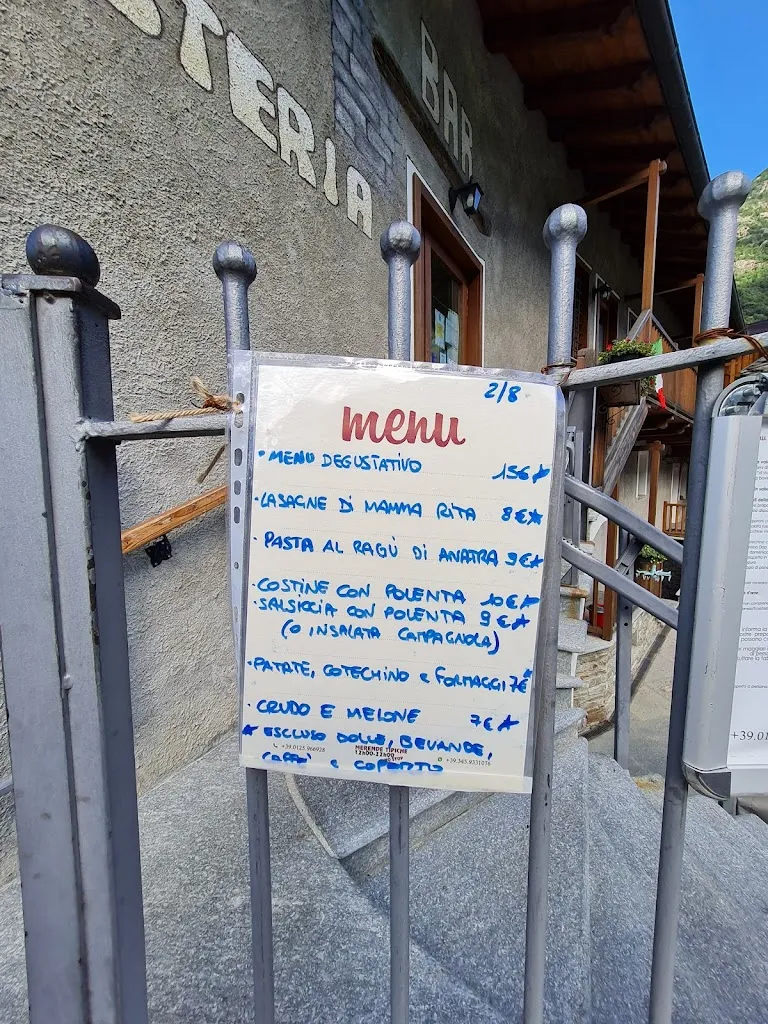 TERIA
BAR
2/8
menu
• MENU DEGUSTATIVO 15€*
• LASAGNE DI MAMMA RITA 8€*
• PASTA AL RAGÙ DI ANATRA 9€*
• COSTINE CON POLENTA 10€*
• SALSICCIA CON POLENTA 9€*
(O INSALATA CAMPAGNOLA)
• PATATE, COTECHINO E FORMAGGI 7€*
• CRUDO E MELONE 7€*
* ESCLUSO DOLCE, BEVANDE,
CAFFÈ E COPERTO
+39.0125.966928
MERENDE TIPICHE
12h00-22h00
+39.345.9331076
+39.01